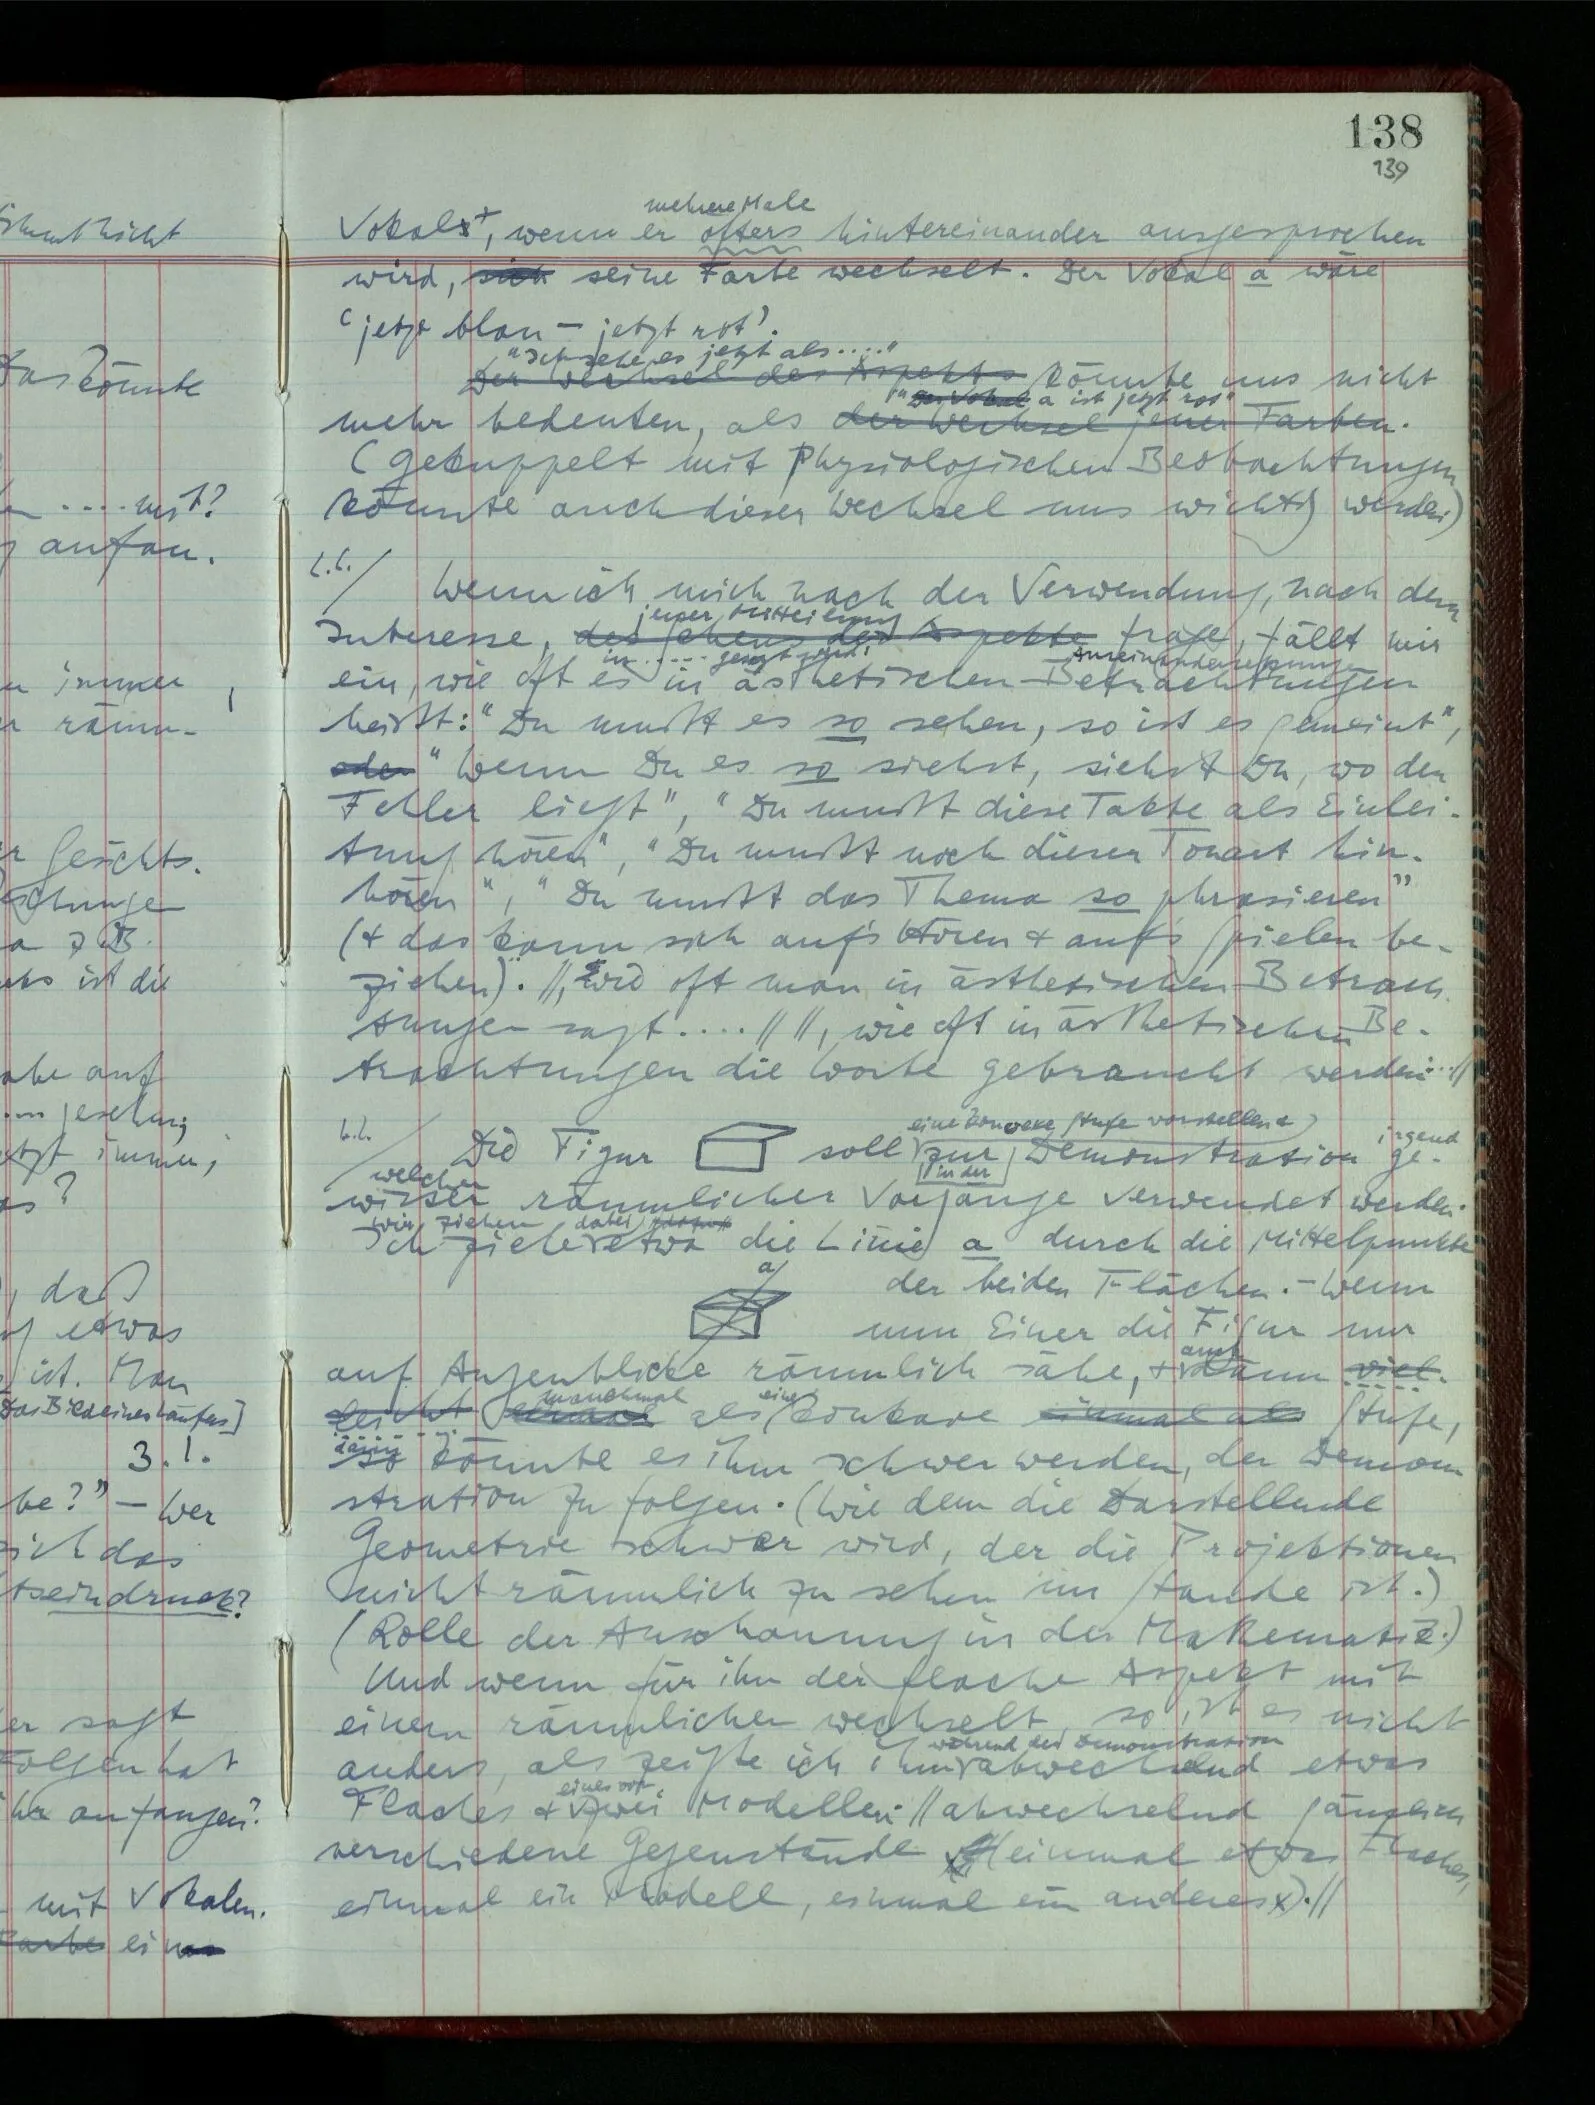 138
139
mehrere Male
Vokals, wenn er öfters hintereinander ausgesprochen
wird, sich seine Farbe wechselt. Der Vokal a wäre
‘jetzt blau – jetzt rot’.
"Ich sehe es jetzt als ...."
Der Wechsel des Aspekts könnte uns nicht
"Der Vokal a ist jetzt rot"
mehr bedeuten, als der Wechsel jener Farben.
(Gekuppelt mit physiologischen Beobachtungen
könnte auch dieser Wechsel uns wichtig werden)
Wenn ich mich nach der Verwendung, nach dem
jener Mitteilung
Interesse, des Sehens des Aspekts frage, fällt mir
in ..... gesagt wird:
Auseinandersetzungen
ein, wie oft es in ästhetischen Betrachtungen
heißt: "Du mußt es so sehen, so ist es gemeint",
oder "Wenn Du es so siehst, siehst Du, wo der
Fehler liegt", "Du mußt diese Takte als Einlei-
tung hören", "Du mußt nach dieser Tonart hin-
hören", "Du mußt das Thema so phrasieren"
(& das kann sich auf's Hören & auf's Spielen be-
ziehen). //, wie oft man in ästhetischen Betrach-
tungen sagt ....// //, wie oft in ästhetischen Be-
trachtungen die Worte gebraucht werden:..//
eine konvexe Stufe vorstellend
irgend
Die Figur soll zur Demonstration ge-
in der
welcher
wisser räumlicher Vorgänge verwendet werden.
wir ziehen dabei
Ich ziehe etwa die Linie a durch die Mittelpunkte
a
der beiden Flächen. – Wenn
nun Einer die Figur nur
auch
auf Augenblicke räumlich sähe, & dann viel-
manchmal
eine
leicht als konkave einmal als Stufe,
dann
so könnte es ihm schwer werden, der Demon
stration zu folgen. (Wie dem die Darstellende
Geometrie schwer wird, der die Projektionen
nicht räumlich zu sehen im Stande ist.)
(Rolle der Anschauung in der Mathematik.)
Und wenn für ihn der flache Aspekt mit
einem räumlichen wechselt, so ist es nicht
während der Demonstration
anders, als zeigte ich ihm abwechselnd etwas
eines von
Flaches & zwei Modellen. //abwechselnd gänzlich
verschiedene Gegenstände einmal etwas Flaches,
einmal ein Modell, einmal ein anderes).//
nicht
Das könnte
.... mit?
anfan.
immer
räum-
Gesichts-
z.B.
ist die
auf
immer,
daß
etwas
ist. Man
3.1.
be?" – Wer
sich das
tseindruck?
er sagt
Folgen hat
anfangen?
mit Vokalen.
Farbe eines